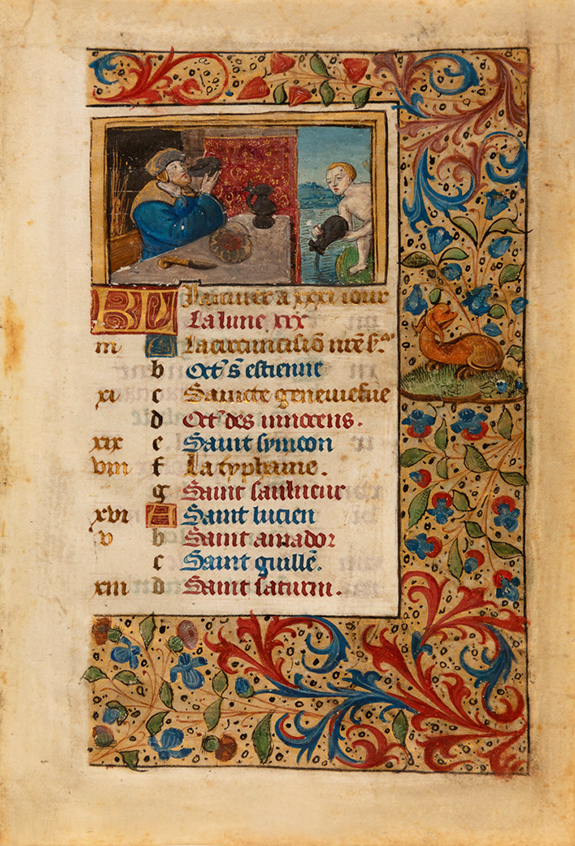 KL Januier a xxxi iour
La lune xxx
iii A La circuncisiõ nre sr
b Oct' s estienne
xi c Saincte geneuiefue
d Oct' des innocens.
xix e Saint symeon
viii f La typhaine.
g Saint saulueur
xvi A Saint lucien
v b Saint amador
c Saint guille.
xiii d Saint saturin.